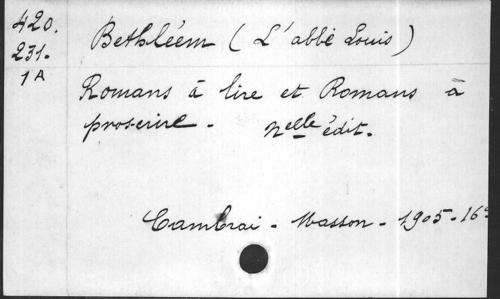 420.
231.
1A
Bethléem (L'abbé Louis)
Romans à lire et Romans à
proscrire. Nelle édit.
Cambrai - Masson - 1905 - 16°